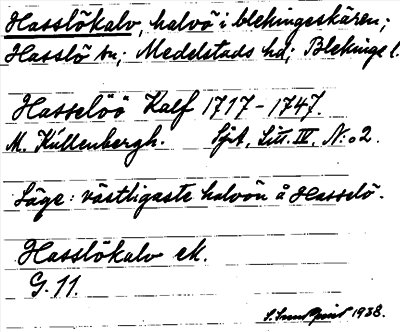 Hasslökalv, halvö i blekingeskären;
Hasslö sn; Medelstads hd; Blekinge l.
Hasselöö Kalf 1717-1747.
M. Küllenbergh. Sjöt, Litt. IV, N:o 2.
Läge: västligaste halvön å Hasselö.
Hasslökalv ek.
G. 11.
1938.